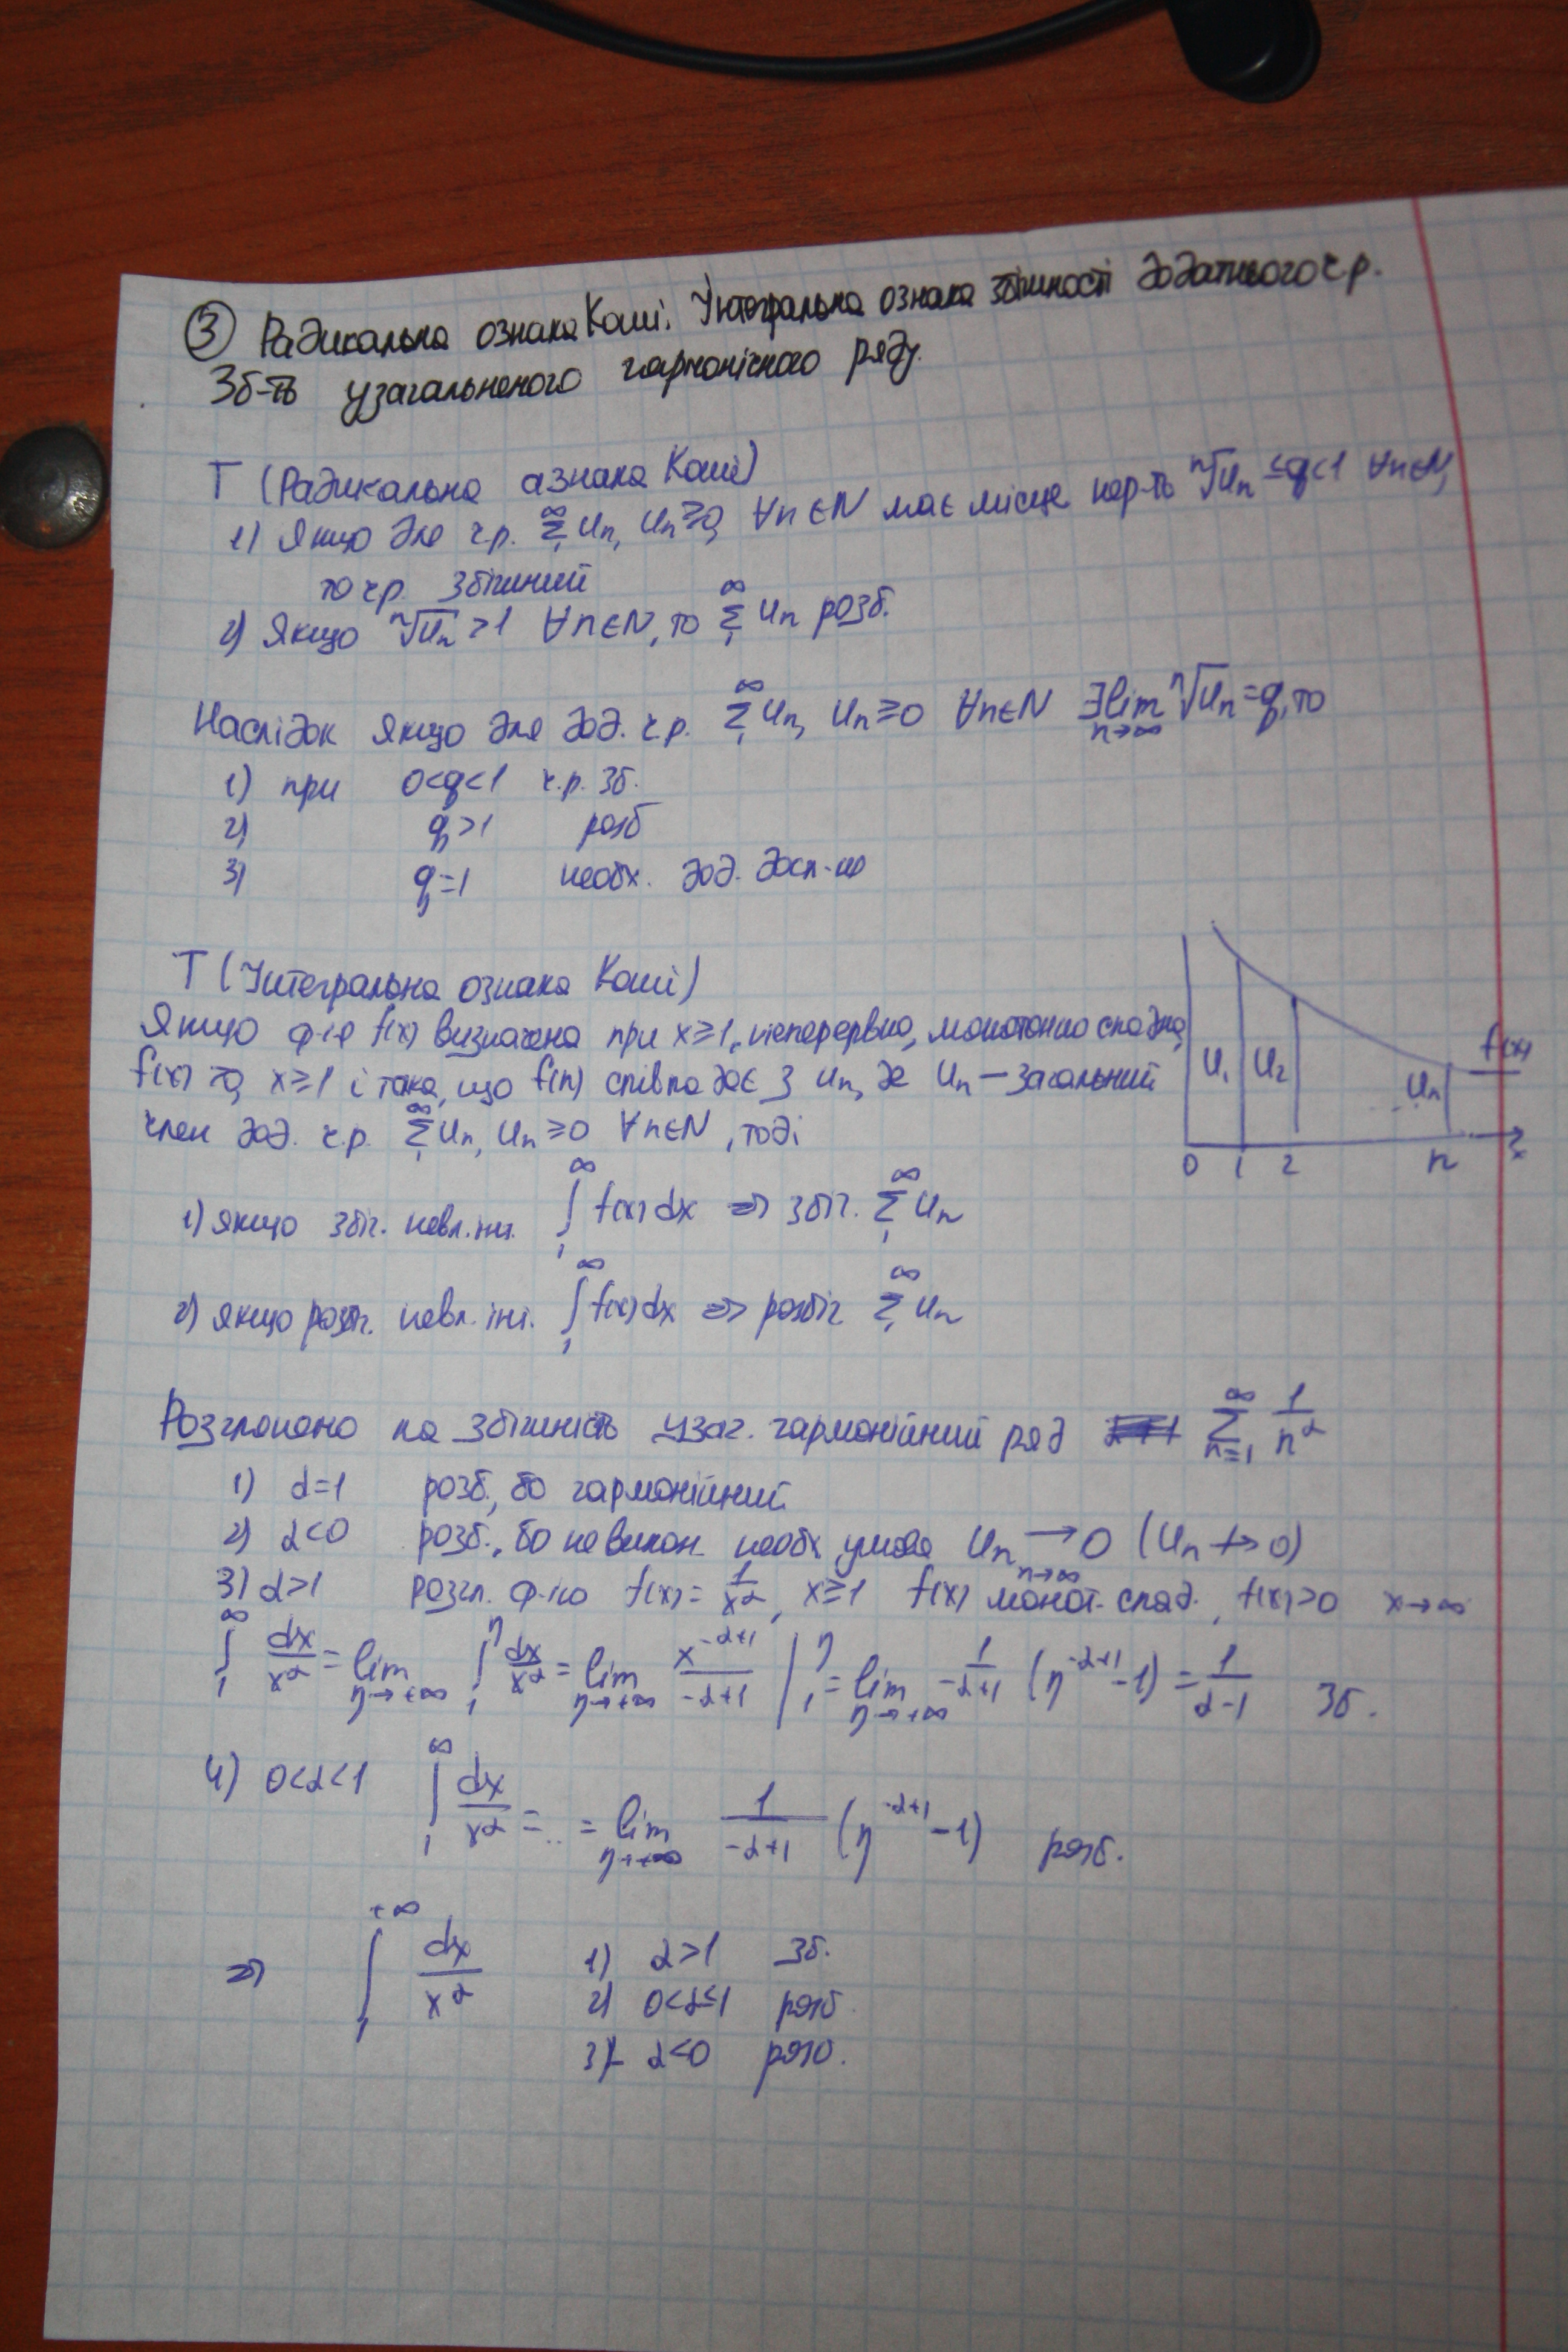 ③ Радикальна ознака Коші. Інтегральна ознака збіжності додатнього ч.р.
Зб-ть узагальненого гармонічного ряду.
Т (Радикальна ознака Коші)
1) Якщо для ч.р. ∞∑1 Un, Un≥0, ∀n∈N має місце нер-ть ⁿ√Un ≤q<1 ∀n∈N,
то ч.р. збіжний
2) Якщо ⁿ√Un >1 ∀n∈N, то ∞∑1 Un розб.
Наслідок Якщо для дод. ч.р. ∞∑1 Un, Un≥0 ∀n∈N ∃lim n→∞ ⁿ√Un =q, то
1) при 0<q<1 ч.р. зб.
2) q>1 розб
3) q=1 необх. дод. досл-ня
Т (Інтегральна ознака Коші)
Якщо ф-ія f(x) визначена при x≥1, неперервна, монотонно спадна,
f(x)>0, x≥1 і така, що f(n) співпадає з Un, де Un – загальний
член дод. ч.р. ∞∑1 Un, Un≥0 ∀n∈N, тоді
U1 U2 Un f(x)
0 1 2 n x
1) якщо збіг. невл. інт. ∞∫1 f(x)dx ⇒ збіг. ∞∑1 Un
2) якщо розб. невл. інт. ∞∫1 f(x)dx ⇒ розбіг ∞∑1 Un
Розглянемо на збіжність узаг. гармонійний ряд ∞∑n=1 1/n^α
1) α=1 розб., бо гармонійний
2) α<0 розб., бо не викон. необх. умова Un →n→∞ 0 (Un ↛ 0)
3) α>1 розгл. ф-ію f(x)= 1/x^α, x≥1 f(x) монот. спад., f(x)>0 x→∞
∞∫1 dx/x^α = lim η→+∞ η∫1 dx/x^α = lim η→+∞ x^(-α+1)/(-α+1) |η1 = lim η→+∞ 1/(-α+1) (η^(-α+1) -1) = 1/(α-1) Зб.
4) 0<α<1 ∞∫1 dx/x^α = .. = lim η→+∞ 1/(-α+1) (η^(-α+1) -1) розб.
⇒ +∞∫1 dx/x^α 1) α>1 Зб.
2) 0<α≤1 розб
3) α<0 розб.